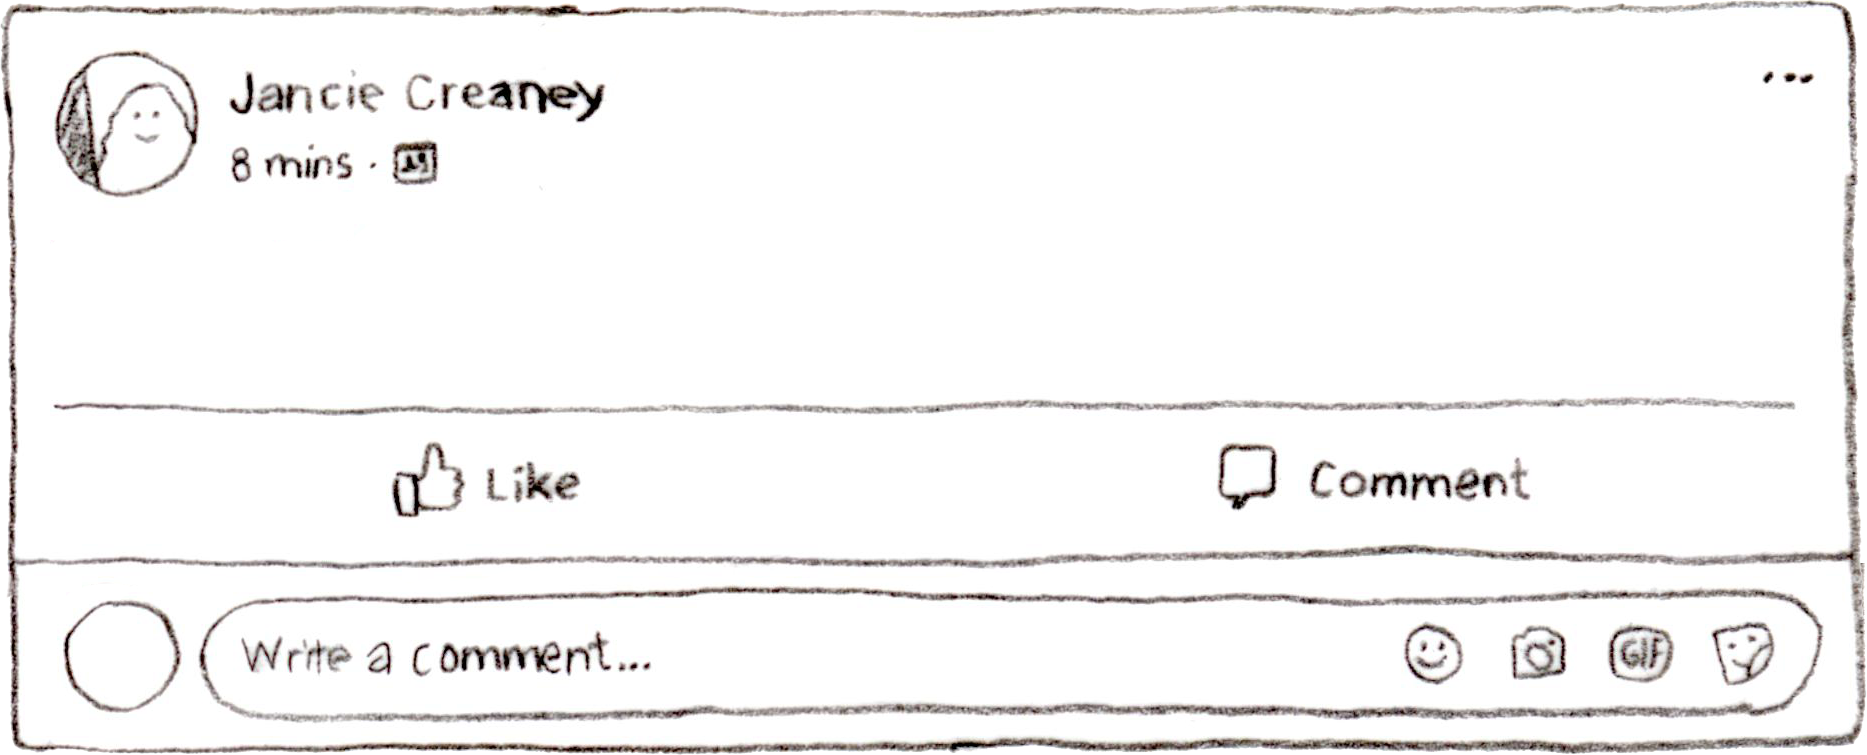 Jancie Creaney
...
8 mins ·
Like
Comment
Write a comment...
GIF